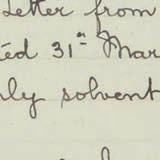 Letter from
ed 31st Mar
ly solvent